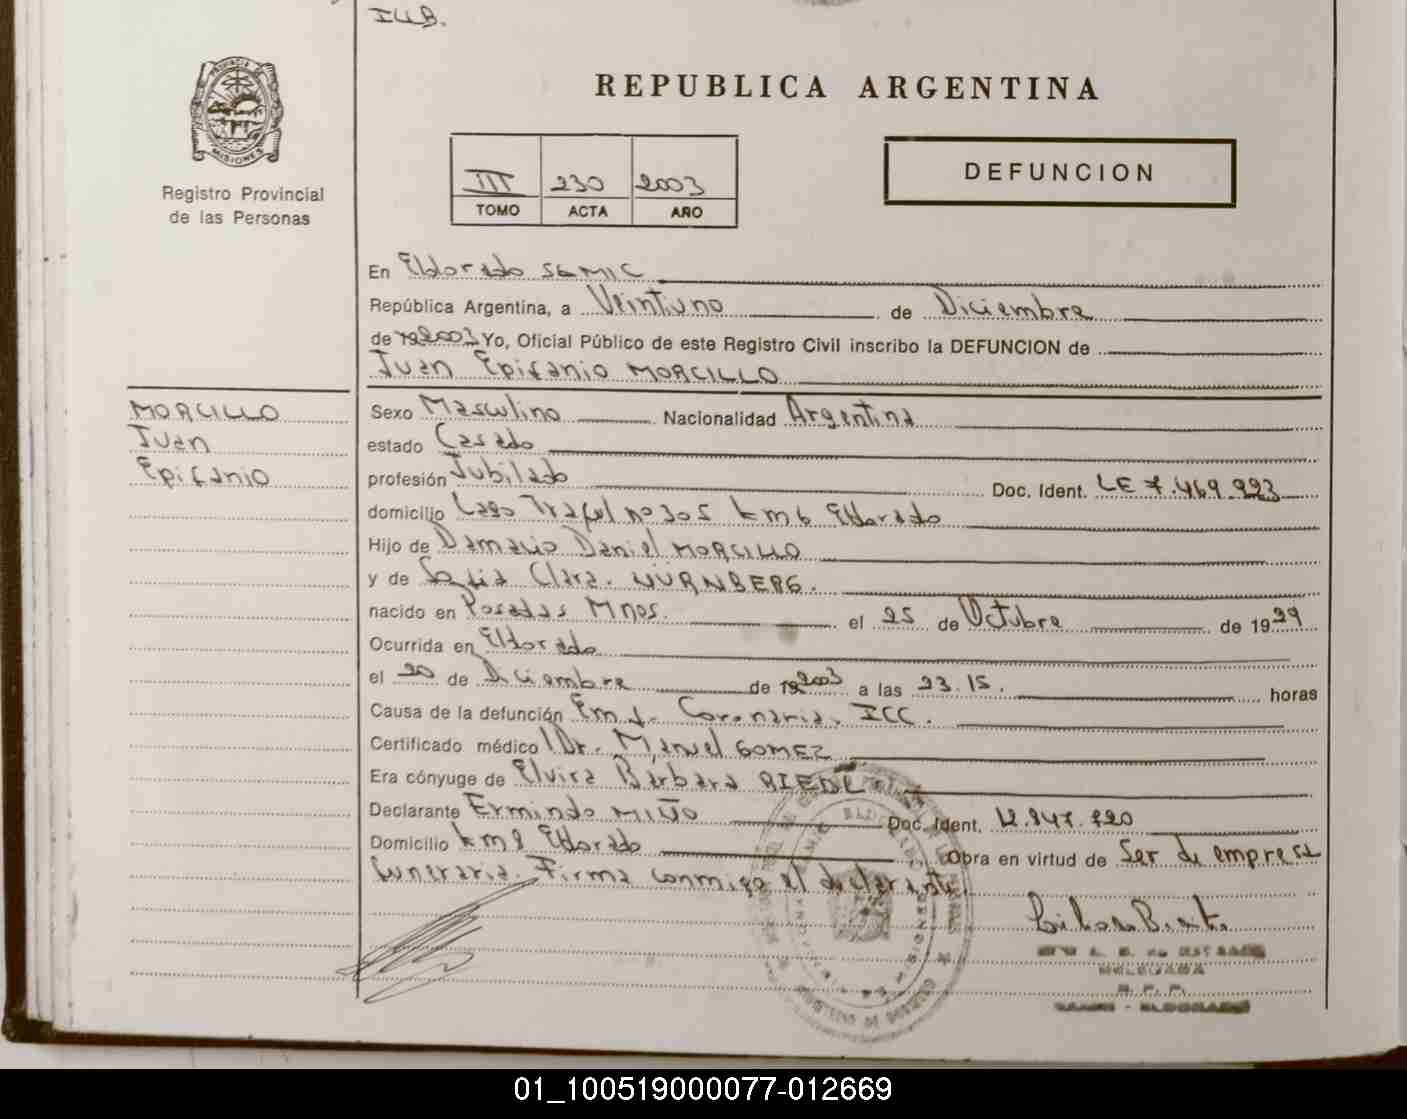 I4B.
PROVINCIA DE
MISIONES
Registro Provincial
de las Personas
REPUBLICA ARGENTINA
III 230 2003
TOMO ACTA AÑO
DEFUNCION
En Eldorado SEMIC
República Argentina, a Veintiuno de Diciembre
de 19 2003 Yo, Oficial Público de este Registro Civil inscribo la DEFUNCION de
Juan Epifanio MORCILLO
MORCILLO
Juan
Epifanio
Sexo Masculino Nacionalidad Argentina
estado Casado
profesión Jubilado Doc. Ident. LE 7.469.993
domicilio Lago Traful nº 305 km 6 Eldorado
Hijo de Damacio Daniel MORCILLO
y de Sofia Clara. NÜRNBERG.
nacido en Posadas Mnes. el 25 de Octubre de 1929
Ocurrida en Eldorado
el 20 de Diciembre de 19 2003 a las 23.15. horas
Causa de la defunción Enf. Coronaria. ICC.
Certificado médico Dr. Manuel GOMEZ
Era cónyuge de Elvira Bárbara RIEDL
Declarante Ermindo MIÑO Doc. Ident. 12.847.720
Domicilio km 8 Eldorado Obra en virtud de Ser de empresa
funeraria. Firma conmigo el declarante
DELEGADA
R. P. P.
ELDORADO
01_100519000077-012669